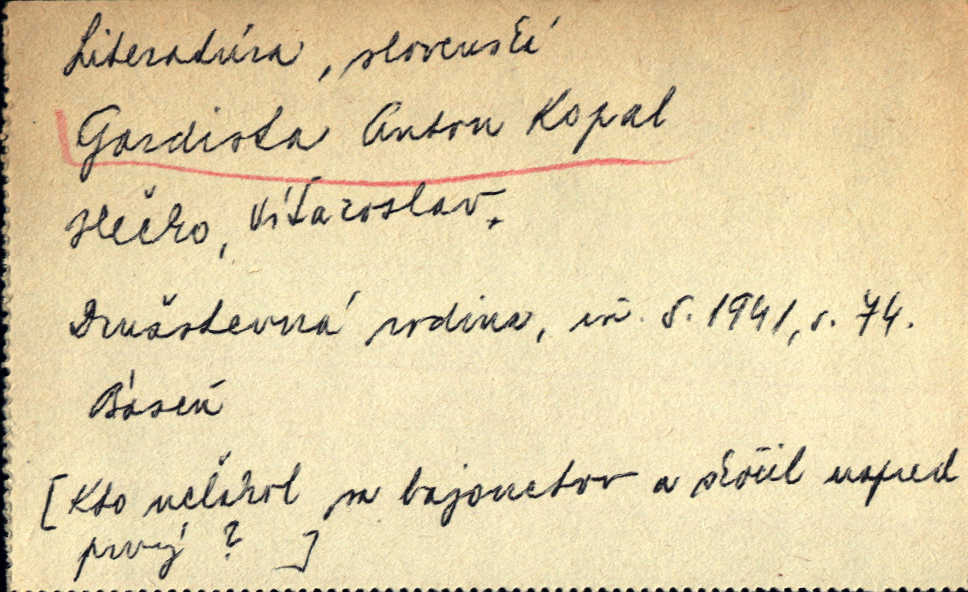 Literatúra, slovenská
Gardista Anton Kopal
Hečko, Víťazoslav.
Družstevná rodina, č. 5. 1941, s. 74.
Báseň
[Kto neľakol sa bajonetov a skočil napred
prvý? ]